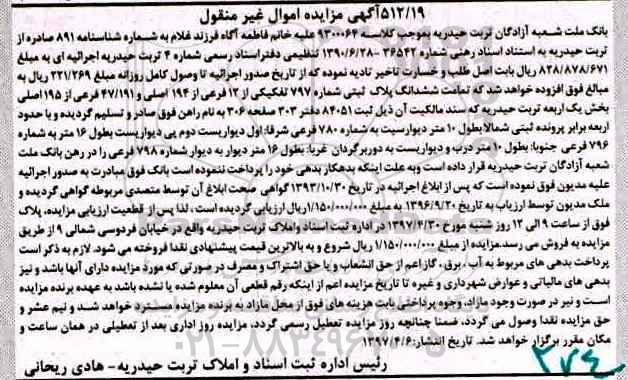 ۵۱۲/۱۹آگهی مزایده اموال غیر منقول
بانک ملت شعبه آزادگان تربت حیدریه بموجب کلاسه ۹۳۰۰۰۶۴ علیه خانم فاطمه آگاه فرزند غلام به شماره شناسنامه ۸۹۱ صادره از
تربت حیدریه به استناد اسناد رهنی شماره ۳۶۵۴۲ -۱۳۹۰/۶/۲۸ تنظیمی دفتراسناد رسمی شماره ۴ تربت حیدریه اجرائیه ای به مبلغ
۸۲۸/۸۷۸/۶۷۱ ریال بابت اصل طلب و خسارت تاخیر تادیه نموده که از تاریخ صدور اجرائیه تا وصول کامل روزانه مبلغ ۲۲۱/۲۶۹ ریال به
مبالغ فوق افزوده خواهد شد که تمامت ششدانگ پلاک ثبتی شماره ۷۹۷ تفکیکی از ۱۲ فرعی از ۱۹۴ اصلی و ۴۷/۱۹۱ فرعی از ۱۹۵ اصلی
بخش یک اربعه تربت حیدریه که سند مالکیت آن ذیل ثبت ۸۴۰۵۱ دفتر ۳۰۳ صفحه ۳۰۶ به نام راهن فوق صادر و تسلیم گردیده و با حدود
اربعه برابر پرونده ثبتی شمالا بطول ۱۰ متر دیواریست به شماره ۷۸۰ فرعی شرقا: اول دیواریست دوم پی دیواریست بطول ۱۶ متر به شماره
۷۹۶ فرعی جنوبا: بطول ۱۰ متر درب و دیواریست به دوربرگردان غربا: بطول ۱۶ متر دیوار به دیوار شماره ۷۹۸ فرعی را در رهن بانک ملت
شعبه آزادگان تربت حیدریه قرار داده است وبه علت اینکه بدهکار بدهی خود را پرداخت ننموده است بانک فوق مبادرت به صدور اجرائیه
علیه مدیون فوق نموده است که پس از ابلاغ اجرائیه در تاریخ ۱۳۹۳/۱۰/۳۰ گواهی صحت ابلاغ آن توسط متصدی مربوطه گواهی گردیده و
ملک مدیون توسط ارزیاب به تاریخ ۱۳۹۶/۹/۲۰ به مبلغ ۱/۱۵۰/۰۰۰/۰۰۰ریال ارزیابی گردیده است ، لذا پس از قطعیت ارزیابی مزایده، پلاک
فوق از ساعت ۹ الی ۱۲ روز شنبه مورخ ۱۳۹۷/۴/۳۰ در اداره ثبت اسناد واملاک تربت حیدریه واقع در خیابان فردوسی شمالی ۹ از طریق
مزایده به فروش می رسد.مزایده از مبلغ ۱/۱۵۰/۰۰۰/۰۰۰ ریال شروع و به بالاترین قیمت پیشنهادی نقدا فروخته می شود، لازم به ذکر است
پرداخت بدهی های مربوط به آب ، برق ، گاز اعم از حق انشعاب و یا حق اشتراک و مصرف در صورتی که مورد مزایده دارای آنها باشد و نیز
بدهی های مالیاتی و عوارض شهرداری و غیره تا تاریخ مزایده اعم از اینکه رقم قطعی آن معلوم شده یا نشده باشد به عهده برنده مزایده
است و نیز در صورت وجود مازاد، وجوه پرداختی بابت هزینه های فوق از محل مازاد به برنده مزایده مسترد خواهد شد و نیم عشر و
حق مزایده نقدا وصول می گردد، ضمنا چنانچه روز مزایده تعطیل رسمی گردد، مزایده روز اداری بعد از تعطیلی در همان ساعت و
مکان مقرر برگزار خواهد شد. تاریخ انتشار: ۱۳۹۷/۴/۶
رئیس اداره ثبت اسناد و املاک تربت حیدریه- هادی ریحانی
۲۷۴